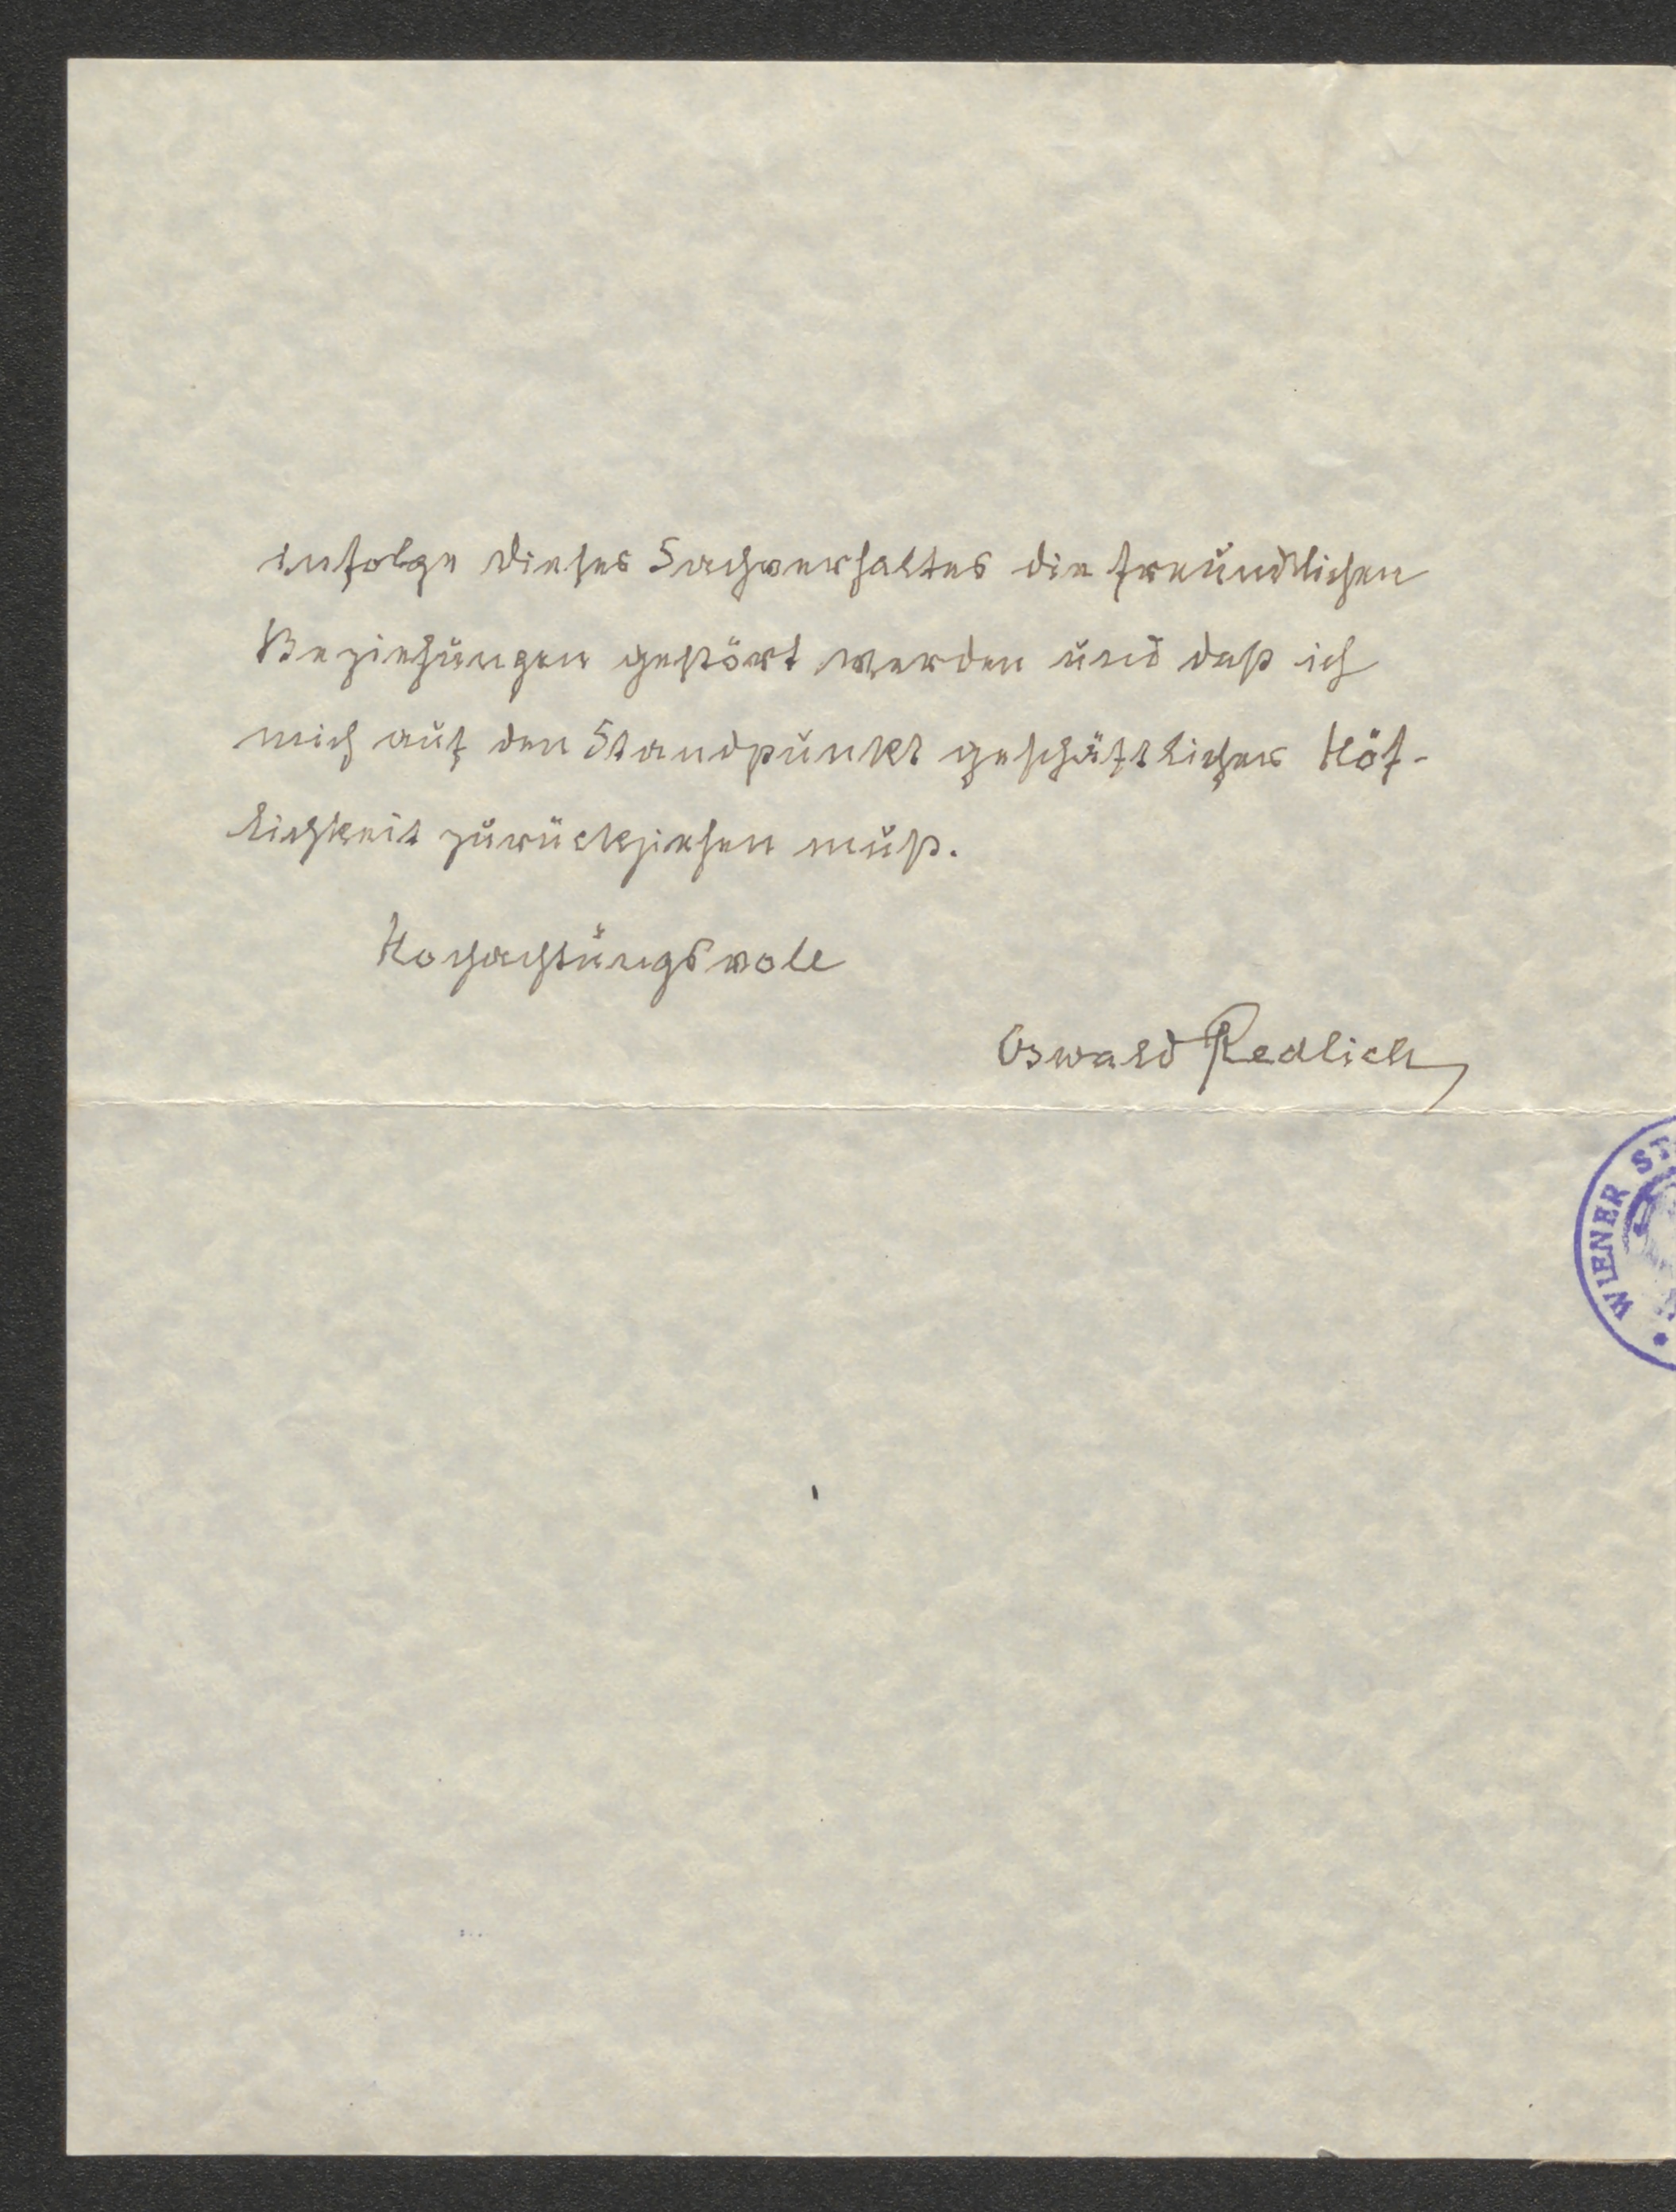 infolge dieses Sachverhaltes die freundlichen
Beziehungen gestört werden und daß ich
mich auf den Standpunkt geschäftlicher Höf-
lichkeit zurückziehen muß.
Hochachtungsvoll
Oswald Redlich
WIENER ST